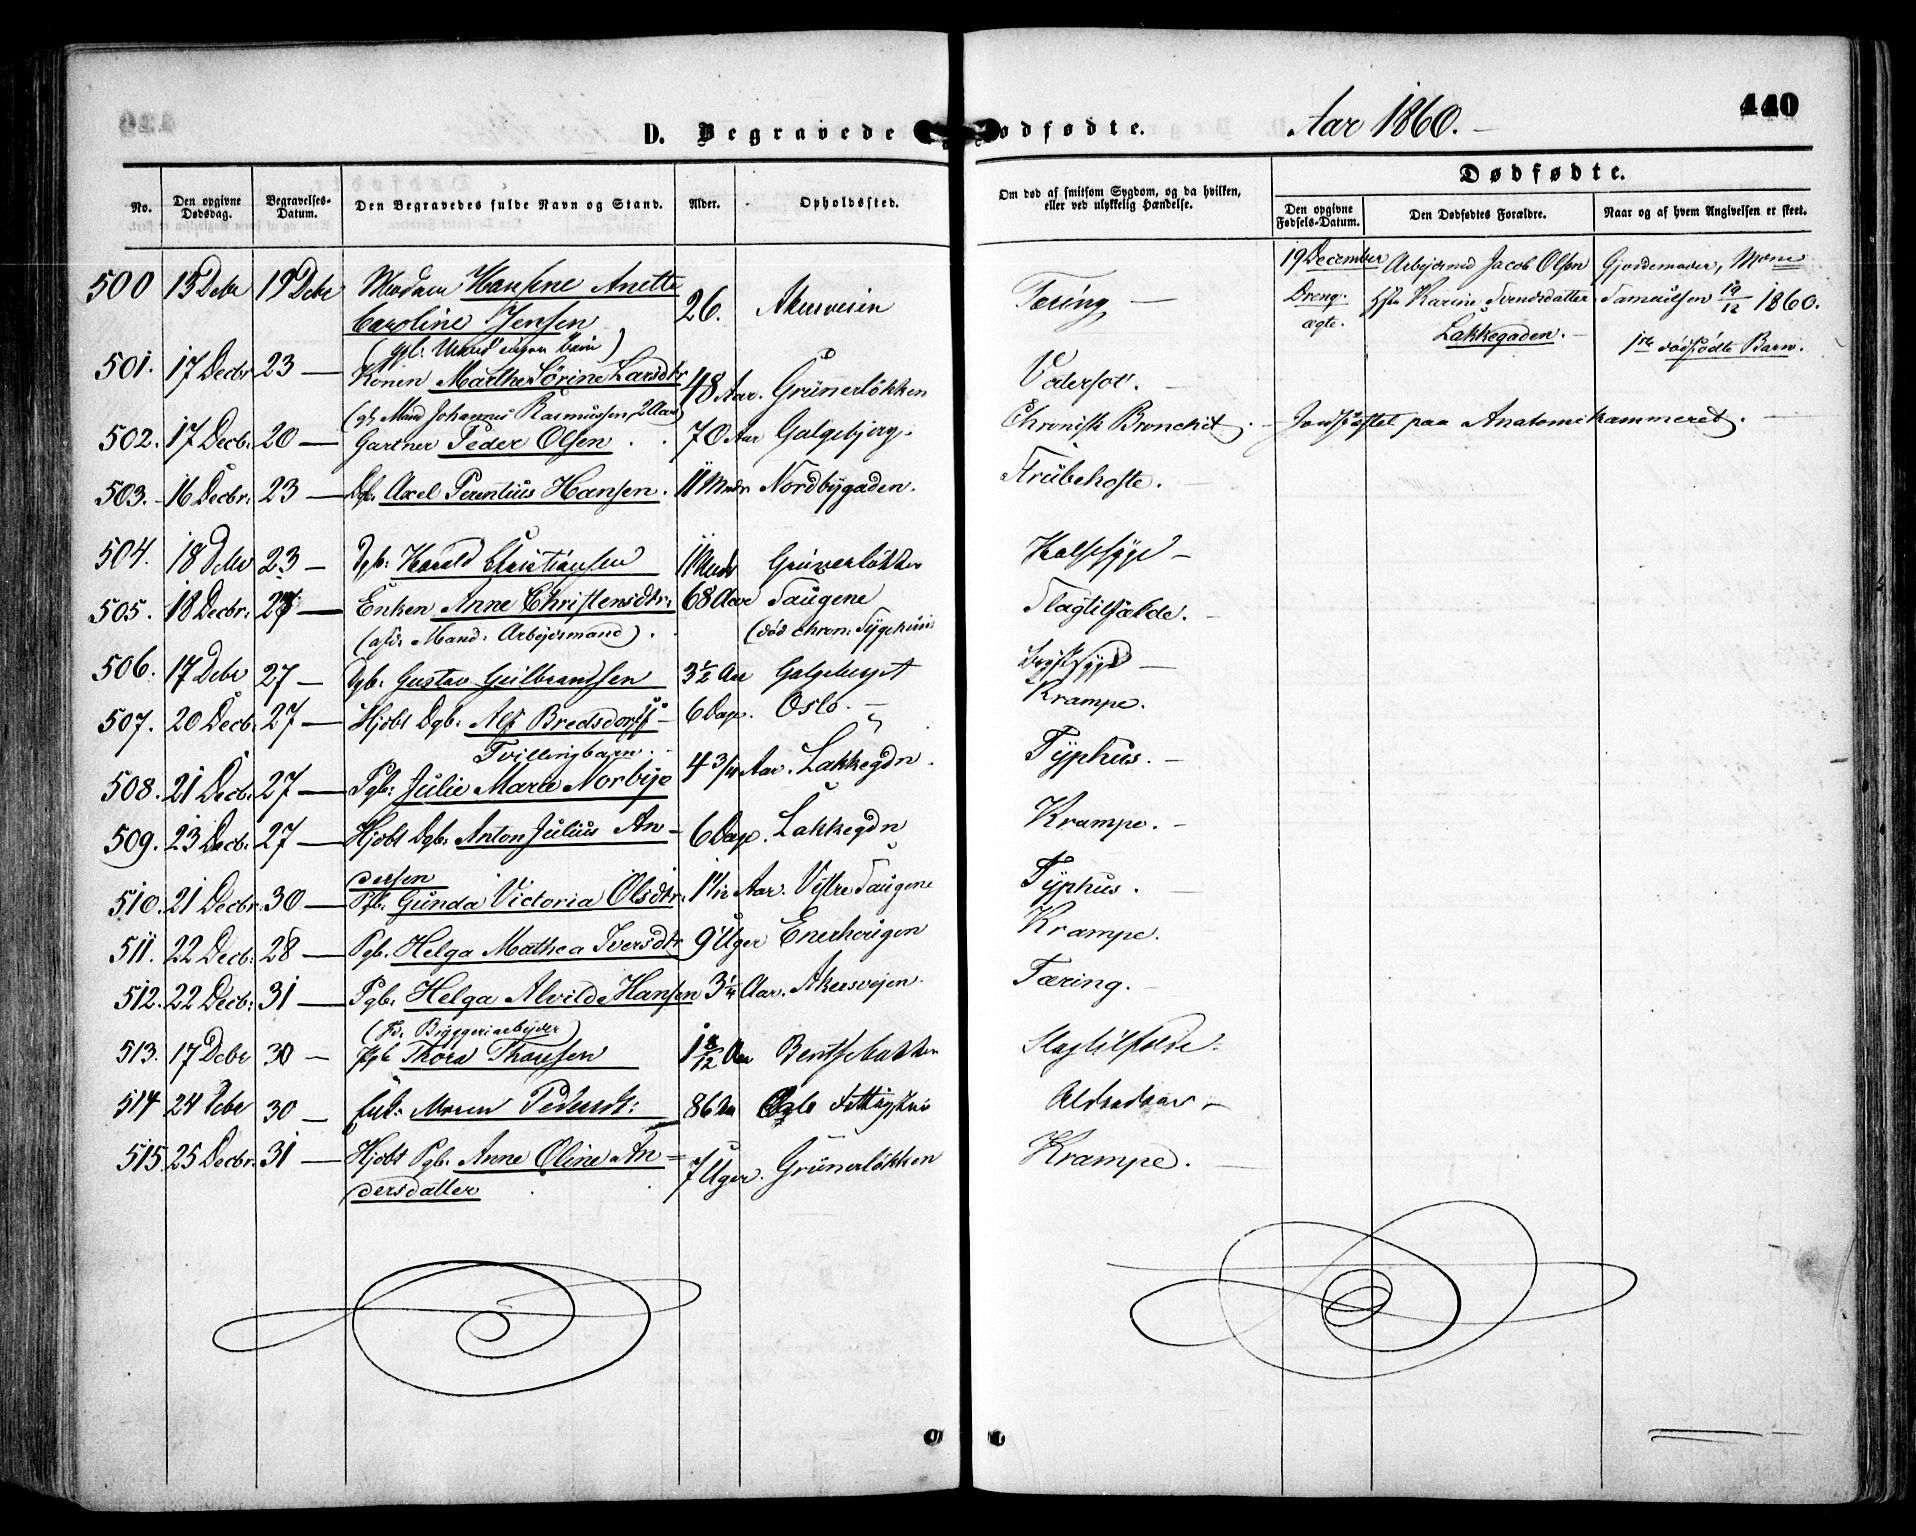 440
Aar 1860.
D. Begravede
ødfødte.
Dødfødte.
No.
Den opgivne Dødsdag.
Begravelses-Datum.
Den Begravedes fulde Navn og Stand.
Alder.
Opholdssted.
Om død af smitsom Sygdom, og da hvilken, eller ved ulykkelig Hændelse.
Den opgivne Fødsels-Datum.
Den Dødfødtes Forældre.
Naar og af hvem Angivelsen er skeet.
500 15 Debr 19 Debr Madam Hansine Anette 26. Akersveien Tæring —
Caroline Jensen
19 December Arbejdsmd Jacob Olsen Gjordemoder,
Dreng. Karine Svendsdatter Samuelsen 19/12 1860.
ægte. Lakkegaden. — 1ste dødfødte Barn.
501. 17 Decbr 23 — Konen Marthe Sørine Larsdtr 48 Aar. Grünerløkken Vatersot. —
(gl. Mand Johannes Rasmussen, 2
502. 17 Decbr. 20 — Gartner Peder Olsen 70 Aar Galgebjerg. Chronisk Bronchit. — Jordfæstet paa Anatomikammeret. —
503. 16 Decbr. 23 — Dgb. Axel Hansen. 11 Mndr Nordbygaden. Strubehoste. —
504. 18 Debr 23 — Dgb. Harald Christiansen 11 Mndr Grünerløkken Halssyge —
505. 18 Decbr. 27 — Enken Anne Christensdtr. 68 Aar Saugene Slagtilfælde. —
(afd. Mand: Arbejdsmand). (død chron: Sygehuus
506. 17 Debr 27 — Dgb. Gustav Gulbrandsen 3½ Aar Galgeberget Brystsyge —
507. 20 Decbr. 27 — Hjdbt Dgb. Alf Bredsdorff — 6 Dage. Oslo. — Krampe.
Tvillingbarn. —
508. 21 Decbr. 27 — Pgb. Julie Marie Norbye 4 3/4 Aar. Lakkegdn. Typhus. —
509. 23 Decbr. 27 — Hjdbt Dgb. Anton Julius An- 6 Dage. Lakkegdn Krampe. —
dersen
510. 21 Decbr. 30 — Pgb. Gunda Victoria Olsdtr. 1 1/12 Aar. Vestre Saugene Typhus. —
511. 22 Decbr. 28 — Pgb. Helga Mathea Iversdtr 9 Uger Enerhougen Krampe.
512. 22 Decbr. 31 — Pgb. Helga Alvilde Hansen 3 1/4 Aar. Akersvejen. Tæring. —
(Fd. Bryggeriarbejder)
513. 17 Debr 30 — Thora Thoresen Aar Bentsebakken Slagtilfælde.
514 24 Debr 30 — Enk. Maren Pedersdt: 86 Aar Oslo Alderdom —
515. 25 Decbr. 31 — Hjdbt Pgb. Anne Oline An= 7 Uger. Grünerløkken Krampe. —
dersdatter